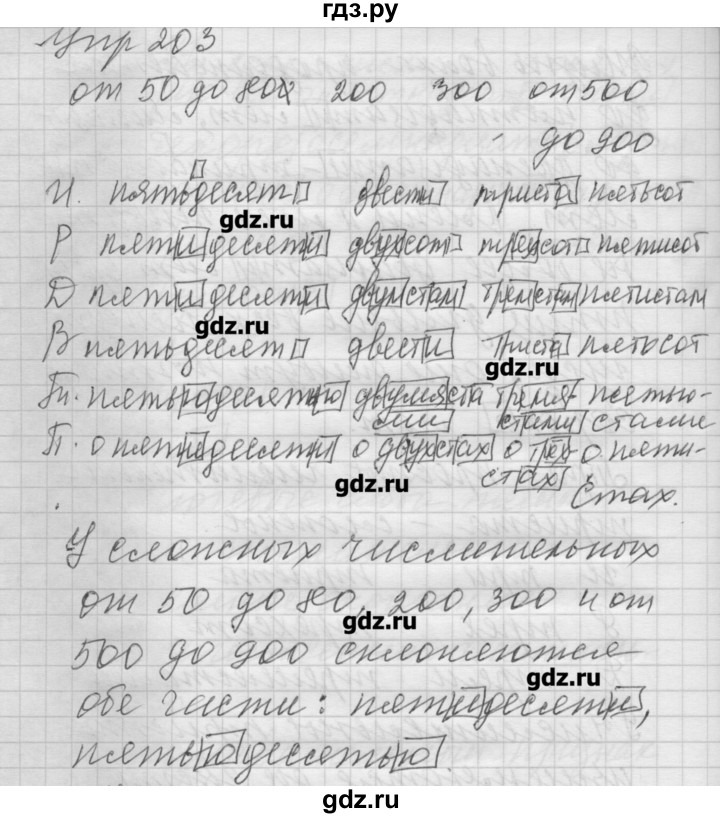 гдз.ру
Упр 203
от 50 до 80 200 300 от 500
до 900
И. пятьдесят двести триста пятьсот
gdz.ru
Р пятидесяти двухсот трехсот пятисот
Д пятидесяти двумстам тремстам пятистам
gdz.ru
В пятьдесят двести триста пятьсот
gdz.ru
Тп. пятьюдесятью двумяста тремя- пятью-
ми стами стами
П. о пятидесяти о двухстах о трех- о пяти-
стах стах.
gdz.ru
У сложных числительных
от 50 до 80, 200, 300 и от
gdz.ru
500 до 900 склоняются
gdz.ru
обе части: пятидесяти,
пятьюдесятью.
gdz.ru